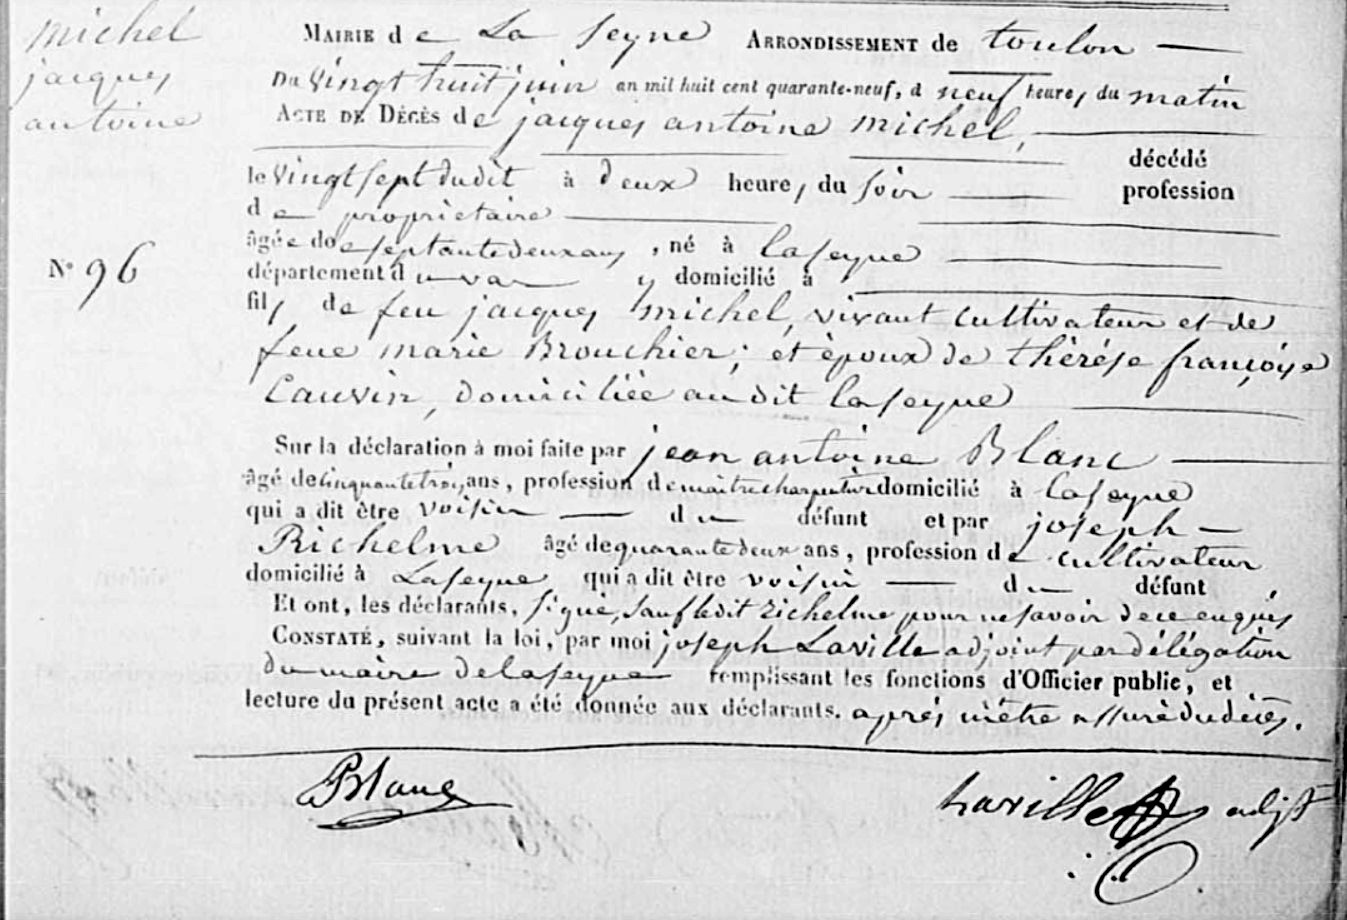 michel
jacques
antoine
N° 96
MAIRIE de La Seyne ARRONDISSEMENT de toulon
Du vingt huit juin an mil huit cent quarante-neuf, à neuf heures du matin
ACTE DE DÉCÈS de jacques antoine michel,
décédé
le vingt sept dudit à deux heures du soir
profession
de proprietaire
âgé de septante deux ans, né à la seyne
département du var y domicilié à
fils de feu jacques michel, vivant cultivateur et de
feue marie Brouchier; et époux de thérése françoise
Cauvin, domiciliée au dit la seyne
Sur la déclaration à moi faite par jean antoine Blanc
âgé de cinquante trois ans, profession de maitre charpentier domicilié à la seyne
qui a dit être voisin du défunt et par joseph
Richelme âgé de quarante deux ans, profession de cultivateur
domicilié à La seyne qui a dit être voisin du défunt,
Et ont, les déclarants, signé, sauf ledit richelme pour ne savoir de ce enquis
CONSTATÉ, suivant la loi, par moi joseph Laville adjoint par délégation
du maire de la seyne remplissant les fonctions d'Officier public, et
lecture du présent acte a été donnée aux déclarants. aprés m'être assuré du décés.
Blanc
Laville adjt